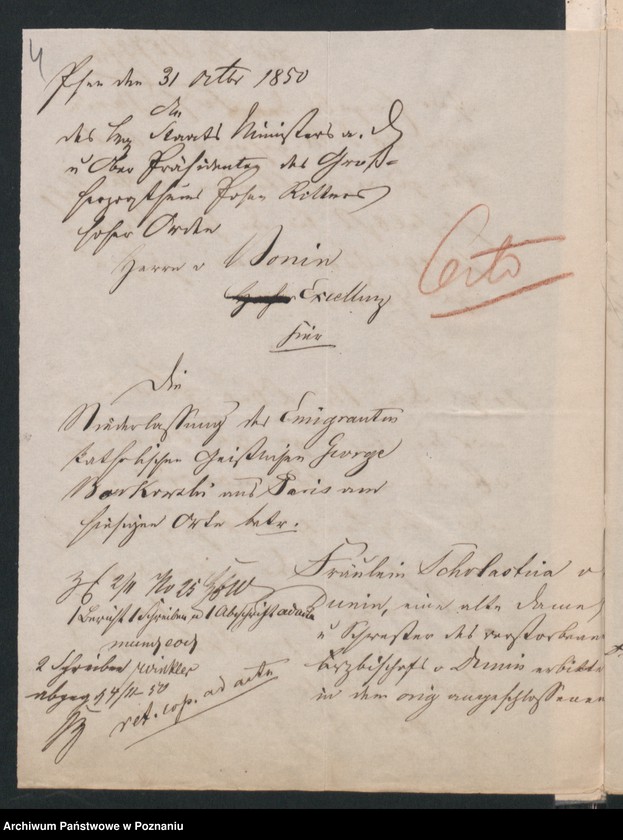 4
Psen den 31 octbr 1850
An
des Kgl Staats Ministers a. D
u Ober Präsidenten des Groß-
herzogthums Posen Ritter
hoher Orden
Herrn v Bonin
Excellenz
hier
Cito
Die
Niederlassung des Emigranten
katholischen Geistlichen George
aus Paris am
hiesigen Orte betr.
Fräulein Scholastica v
Dunin, eine alte Dame
u Schwester des verstorbenen
Erzbischofs v Dunin erbittet
in dem orig angeschlossenen
2/11 No 25
1 Bericht 1 Schreiben u 1 Abschrift ad acta
mundiert
2 Schreiben Winkler
abgeg 4/11 50
ret. cop. ad acta
Archiwum Państwowe w Poznaniu